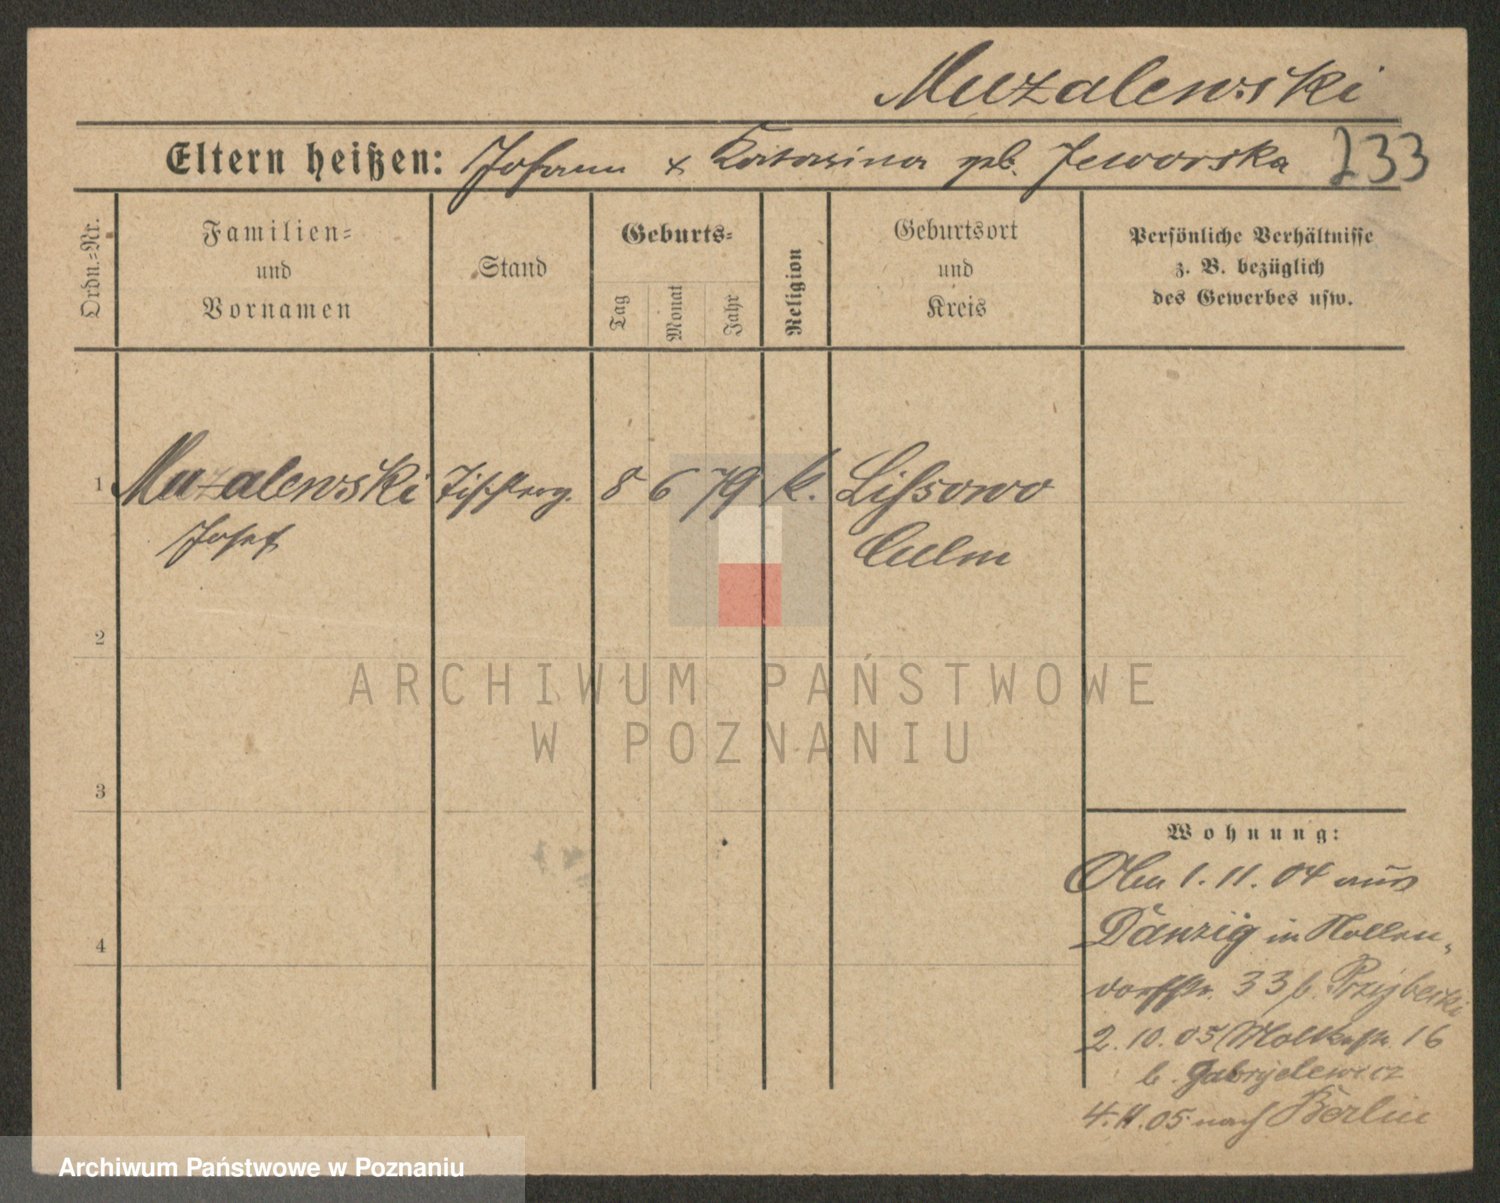 Muzalewski
Eltern heißen: Johann & Katarina geb. Jeworska 233
Ordn.-Nr.
Familien-
und
Vornamen
Stand
Geburts-
Tag
Monat
Jahr
Religion
Geburtsort
und
Kreis
Persönliche Verhältnisse
z. B. bezüglich
des Gewerbes usw.
1 Muzalewski Tischlerg. 8 6 79 k. Lissowo
Josef Culm
2
3
4
Wohnung:
1. 11. 04 aus
Danzig in Nollen-
dorffstr. 33 b. Przybecki
2. 10. 05 Moltkestr. 16
b. Gabryelewicz
4. 11. 05 nach Berlin
ARCHIWUM PAŃSTWOWE
W POZNANIU
Archiwum Państwowe w Poznaniu